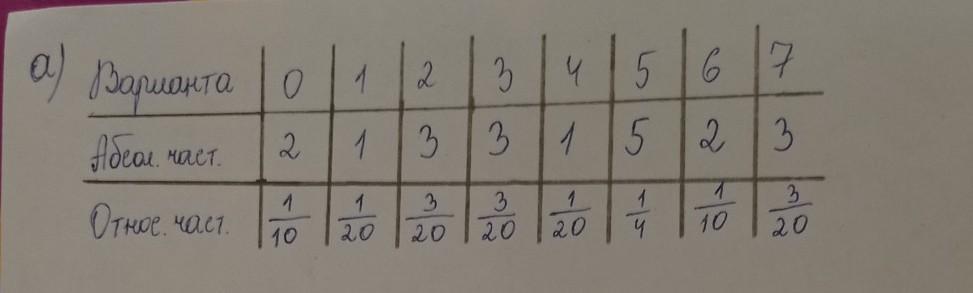 а) Варианта 0 1 2 3 4 5 6 7
Абсол. част. 2 1 3 3 1 5 2 3
Относ. част. 1/10 1/20 3/20 3/20 1/20 1/4 1/10 3/20